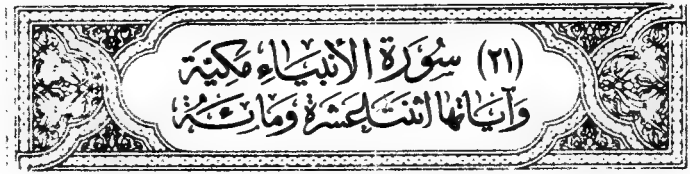 (٢١) سُورَة الأنبيَاءِ مَكيَّة
وَآيَاتها اثنَتَا عَشرَة وَمَائَة